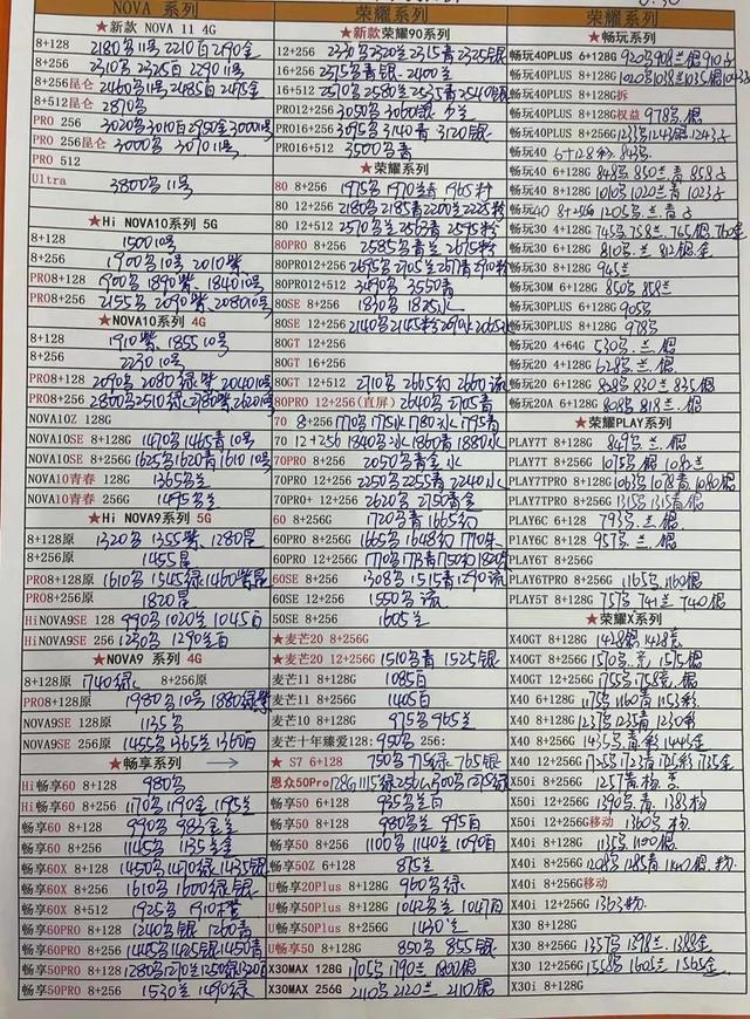 NOVA 系列
★新款 NOVA 11 4G
8+128 2180名11号 2210白2190金
8+256 2310名 2325白 2290 11号
8+256昆仑 2460名11号2485白2475金
8+512昆仑 2870名
PRO 256 3020名3010白2950金3000 11号
PRO 256昆仑 3000名 3070 11号
PRO 512
Ultra 3800名 11号
★Hi NOVA10系列 5G
8+128 1500 10号
8+256 1900名10号 2010紫
PRO8+128 1900名1890紫、1840 10号
PRO8+256 2155名2090紫、2080 10号
★NOVA10系列 4G
8+128 1910紫、1855 10号
8+256 2230 10号
PRO8+128 2090名 2080绿.紫 2040 10号
PRO8+256
NOVA10Z 128G
NOVA10SE 8+128G 1470名1465青10号
NOVA10SE 8+256G 1625名1620青1610 10号
NOVA10青春 128G 1365名兰
NOVA10青春 256G 1495名兰
★Hi NOVA9系列 5G
8+128原 1320名 1355紫、1280昆
8+256原 1455昆
PRO8+128原 1610名 1545绿1460紫昆
PRO8+256原 1820昆
HiNOVA9SE 128 990名1020兰1045白
HiNOVA9SE 256 1230名 1290兰白
★NOVA9 系列 4G
8+128原 1740绿 8+256原
PRO8+128原 1980名10号1880绿紫
NOVA9SE 128原 1135名
NOVA9SE 256原 1455名1365兰1360白
★畅享系列 →
Hi畅享60 8+128 980名
Hi畅享60 8+256 1170名1190金1195兰
畅享60 8+128 990名 983金兰
畅享60 8+256 1145名 1135兰金
畅享60X 8+128 1450名1470绿1435银
畅享60X 8+256 1610名 1600绿银
畅享60X 8+512 1925名 1910橙
畅享60PRO 8+128 1240名银 1260青
畅享60PRO 8+256 1445名1425银1450青
畅享50PRO 8+128 1280名1270兰1250绿1320
畅享50PRO 8+256 1530兰 1490绿
荣耀系列
★新款荣耀90系列
12+256 2330名2320兰2315青2325银
16+256 2375名青银.2400兰
16+512 2570名2580兰2535青2540银
PRO12+256 3050名3060银
PRO16+256 3095名3140青 3120银
PRO16+512 3500名青
★荣耀系列
80 8+256 1975名1970兰青1965粉
80 12+256 2180名2185青2200兰2225粉
80 12+512 2570名兰2563青2595粉
80PRO 8+256 2585名青兰2675粉
80PRO12+256
80PRO12+512 3490名3550青
80SE 8+256 1830名 1825水
80SE 12+256
80GT 12+256
80GT 16+256
80GT 12+512
80PRO 12+256(直屏) 2640名2705青
70 8+256 1770名1775水1780冰1795青
70 12+256 1840名冰1860青1880水
70PRO 8+256 2050名青金水
70PRO 12+256 2250名2255青2240水
70PRO+ 12+256 2620名2750青金
60 8+256G 1720名青1665幻
60PRO 8+256G
60PRO 12+256G
60SE 8+256
60SE 12+256 1550名流
50SE 8+256 1605兰
★麦芒20 8+256G
★麦芒20 12+256G 1510名青 1525银
麦芒11 8+128G 1085白
麦芒11 8+256G 1405白
麦芒10 8+128G 975名965兰
麦芒十年臻爱128: 950名 256:
★ S7 6+128 750名775绿765银
恩众50Pro
畅享50 6+128 935名兰白
畅享50 8+128 980名兰 995白
畅享50 8+256 1100名 1140兰1090白
畅享50Z 6+128 875兰
U畅享20Plus 8+128G 960名绿
U畅享50Plus 8+128G 1042名兰1047白
U畅享50Plus 8+256G 1430兰
U畅享50 8+128G 850名 855银
X30MAX 128G 1705名1790兰 1800银
X30MAX 256G 2110名2120兰 2110银
荣耀系列
★畅玩系列
畅玩40PLUS 6+128G
畅玩40PLUS 8+128G
畅玩40PLUS 8+128G拆
畅玩40PLUS 8+128G权益 978名.银
畅玩40PLUS 8+256G
畅玩40 6+128彩. 843名
畅玩40 6+128G 848名850兰.青858
畅玩40 8+128G 1010名1020兰青1023
畅玩40 8+256G 1205名.兰.青
畅玩30 4+128G 745名758兰.765银760金
畅玩30 6+128G 810名.兰812银.金
畅玩30 8+128G 945兰
畅玩30M 6+128G 850名858兰
畅玩30PLUS 6+128G 905名
畅玩30PLUS 8+128G 978名
畅玩20 4+64G 530名.兰.银
畅玩20 4+128G 628名.兰.银
畅玩20 6+128G 828名830兰835银
畅玩20A 6+128G 808名818兰.银
★荣耀PLAY系列
PLAY7T 8+128G 849名.兰.银
PLAY7T 8+256G 1075名.银1082兰
PLAY7TPRO 8+128G 1063名1078青.1080银
PLAY7TPRO 8+256G 1315名1315青银
PLAY6C 6+128 793名.兰.银
PLAY6C 8+128G 957名.兰.银
PLAY6T 8+256G
PLAY6TPRO 8+256G 1165名.1160银
PLAY5T 8+128G 757名741兰740银
★荣耀X系列
X40GT 8+128G 1428银1428竞
X40GT 8+256G 1570名.竞1575银
X40GT 12+256G 1755名.758竞.银
X40 6+128G 1175名1160青1153彩
X40 8+128G 1237名1235青1230彩
X40 8+256G 1435名.青.彩1445金
X40 12+256G 1725名1723青1715彩1735金
X50i 8+256G 1257青.粉.
X50i 12+256G 1390名.青.1383粉
X50i 12+256G移动 1360名.粉.
X40i 8+128G 1135名.1130银
X40i 8+256G
X40i 8+256G移动
X40i 12+256G 1363粉.
X30 8+128G
X30 8+256G 1357名1398兰.1388金
X30 12+256G 1558名1605兰1565金
X30i 8+128G